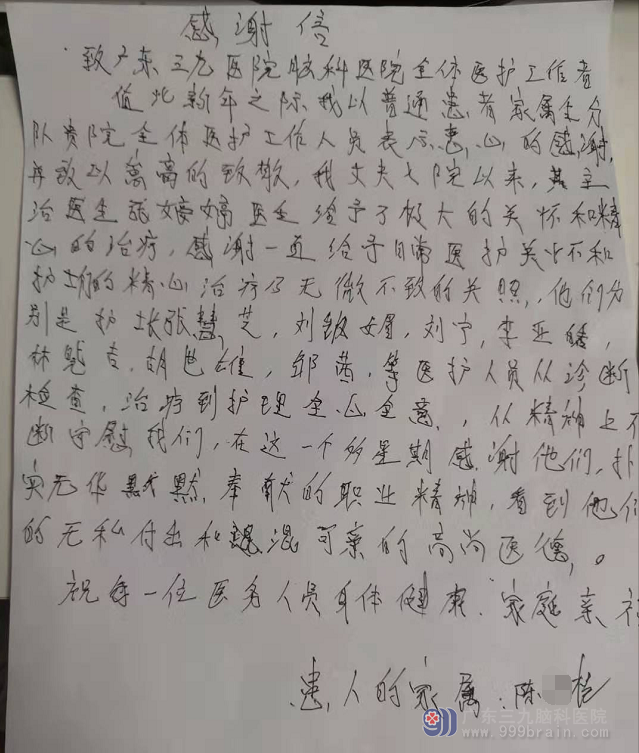 感谢信
致广东三九医院脑科医院全体医护工作者
值此新年之际我以普通患者家属身份
队贵院全体医护工作人员表示衷心的感谢,
并致以崇高的致敬,我丈夫入院以来,其主
治医生张嫦嫦医生给予了极大的关怀和精
心的治疗,感谢一直给予日常医护关怀和
护士的精心治疗乃无微不致的关照,他们分
别是护士长张慧芝,刘银娟,刘宁,李亚
林 吉,胡 雄,邹茜,等医护人员从诊断
检查,治疗到护理全心全意,从精神上不
断安慰我们,在这一个多星期感谢他们,朴
实无华默默奉献的职业精神,看到他们
的无私付出和 可亲的高尚医德。
祝每一位医务人员身体健康.家庭亲
患人的家属.陈 格
广东三九脑科医院
www.999brain.com